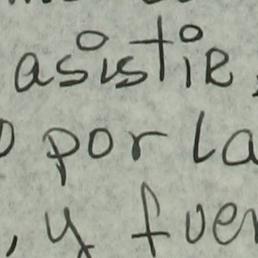 asistie
por la
, y fue